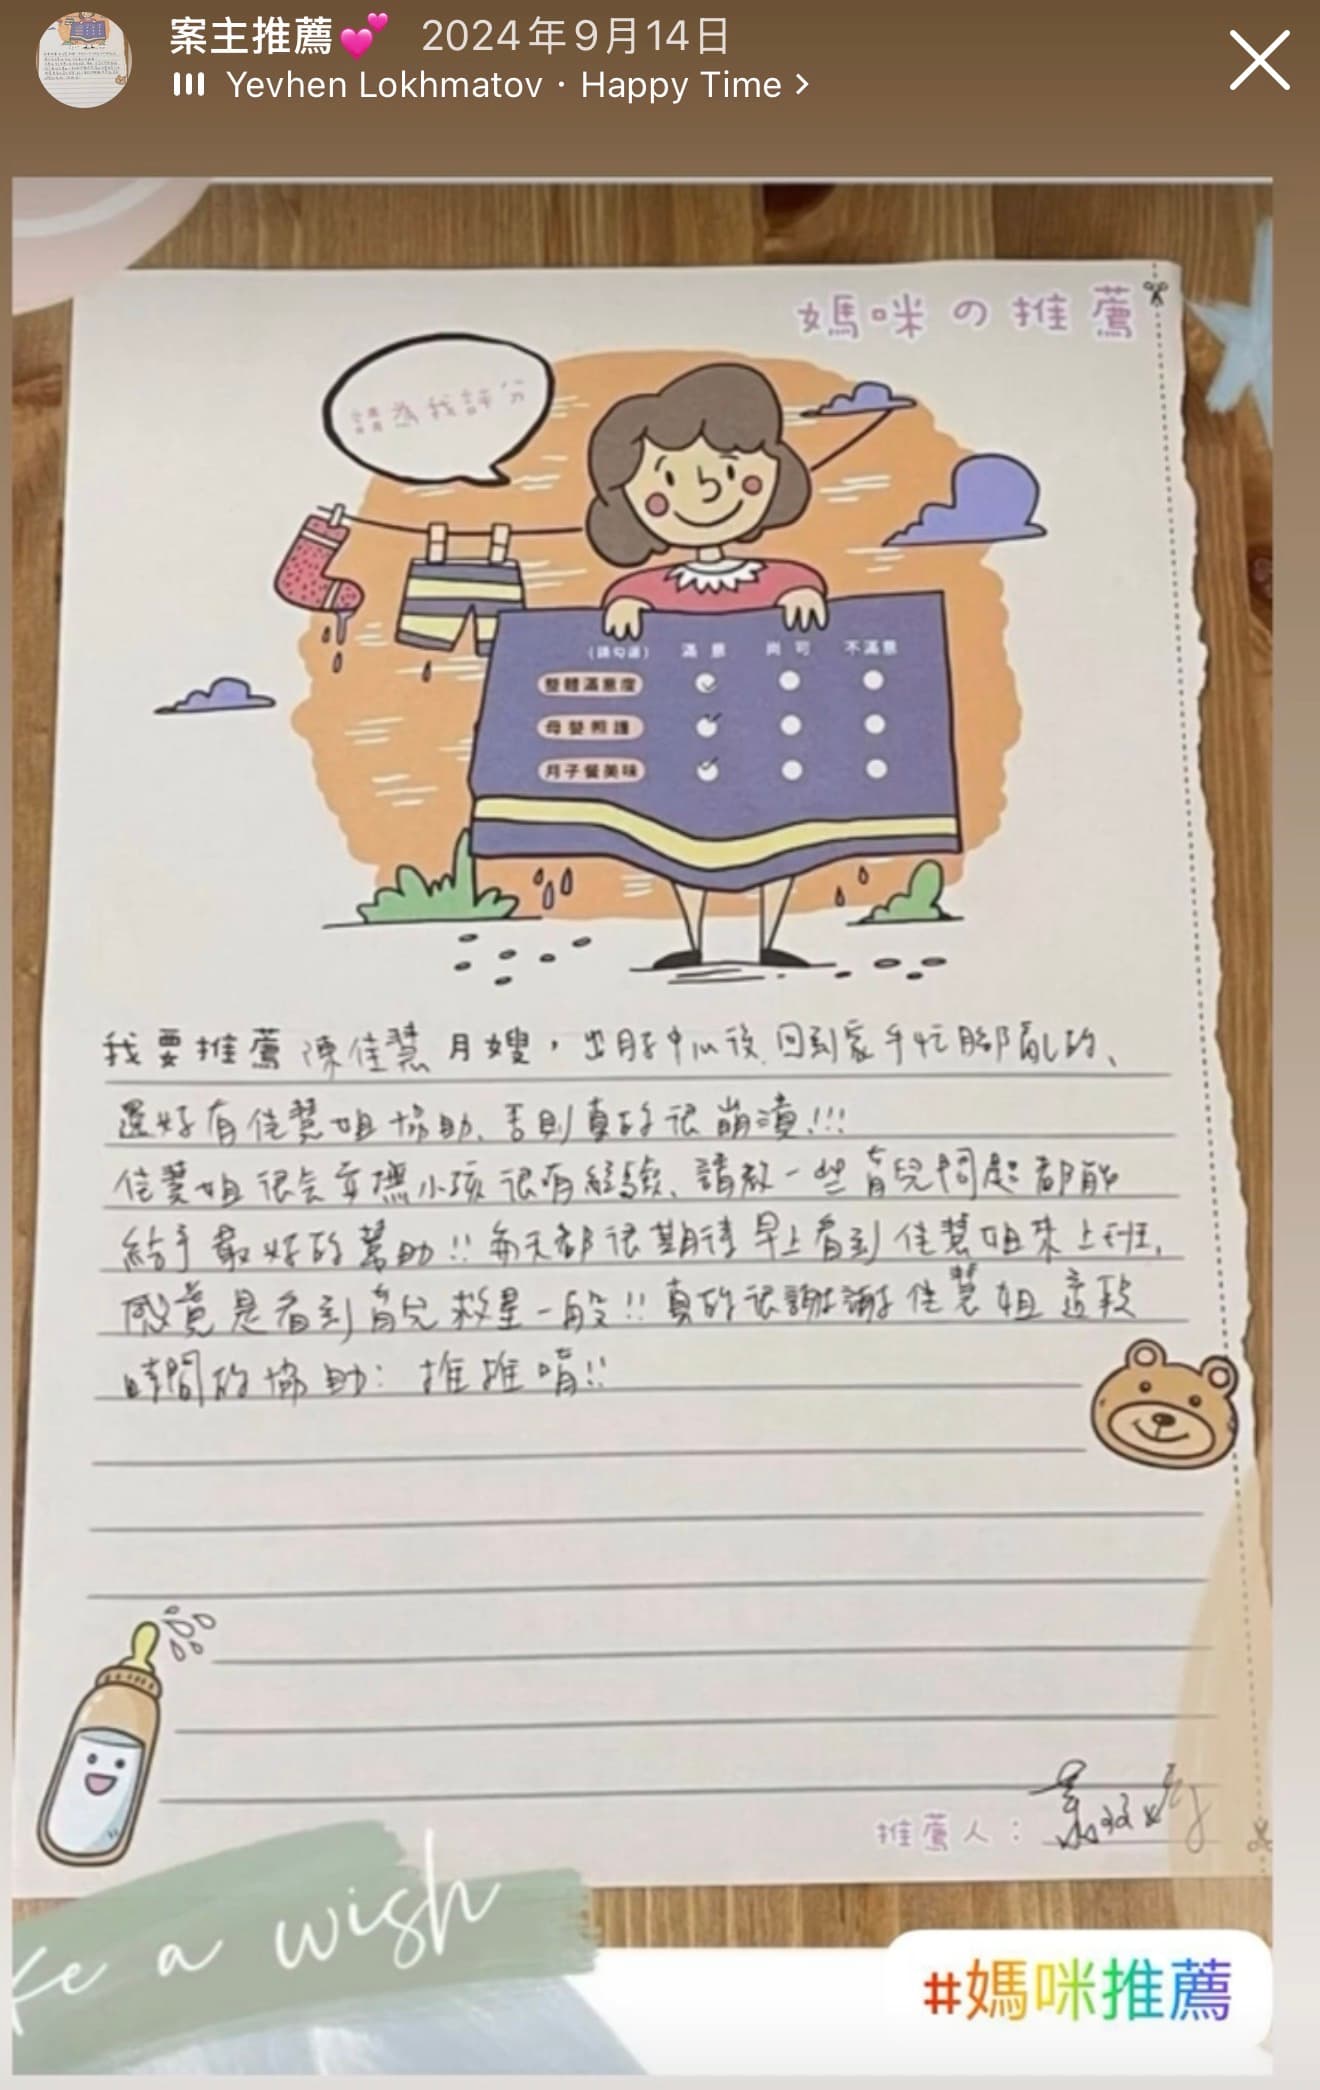 案主推薦💕 2024年9月14日
Yevhen Lokhmatov · Happy Time >
媽咪の推薦
請為我評分
(請勾選) 滿意 尚可 不滿意
整體滿意度
母嬰照護
月子餐美味
我要推薦陳佳慧月嫂，出月子中心後回到家手忙腳亂的、
還好有佳慧姐協助、否則真的很崩潰!!!
佳慧姐很会安撫小孩很有經驗、請教一些育兒問題都能
給予最好的幫助!! 每天都很期待早上看到佳慧姐來上班,
感覺是看到育兒救星一般!! 真的很謝謝佳慧姐這段
時間的協助: 推推唷!!
推薦人：
ke a wish
#媽咪推薦